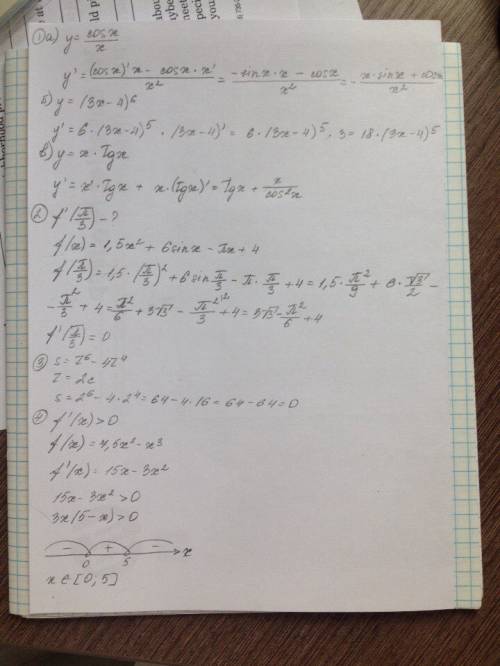 ① а) y = cosx / x
y' = ((cosx)'x - cosx · x') / x² = (-sinx · x - cosx) / x² = - (x · sinx + cosx) / x²
б) y = (3x-4)⁶
y' = 6 · (3x-4)⁵ · (3x-4)' = 6 · (3x-4)⁵ · 3 = 18 · (3x-4)⁵
в) y = x · tgx
y' = x' · tgx + x · (tgx)' = tgx + x / cos²x
② f'(π/3) - ?
f(x) = 1,5x² + 6sinx - πx + 4
f(π/3) = 1,5 · (π/3)² + 6sin π/3 - π · π/3 + 4 = 1,5 · π²/9 + 6 · √3/2 -
- π²/3 + 4 = π²/6 + 3√3 - π²/3 + 4 = 3√3 - π²/6 + 4
f'(π/3) = 0
③ s = t⁶ - 4t⁴
t = 2c
s = 2⁶ - 4 · 2⁴ = 64 - 4 · 16 = 64 - 64 = 0
④ f'(x) > 0
f(x) = 7,5x² - x³
f'(x) = 15x - 3x²
15x - 3x² > 0
3x(5-x) > 0
- + - x
0 5
x ∈ [0; 5]